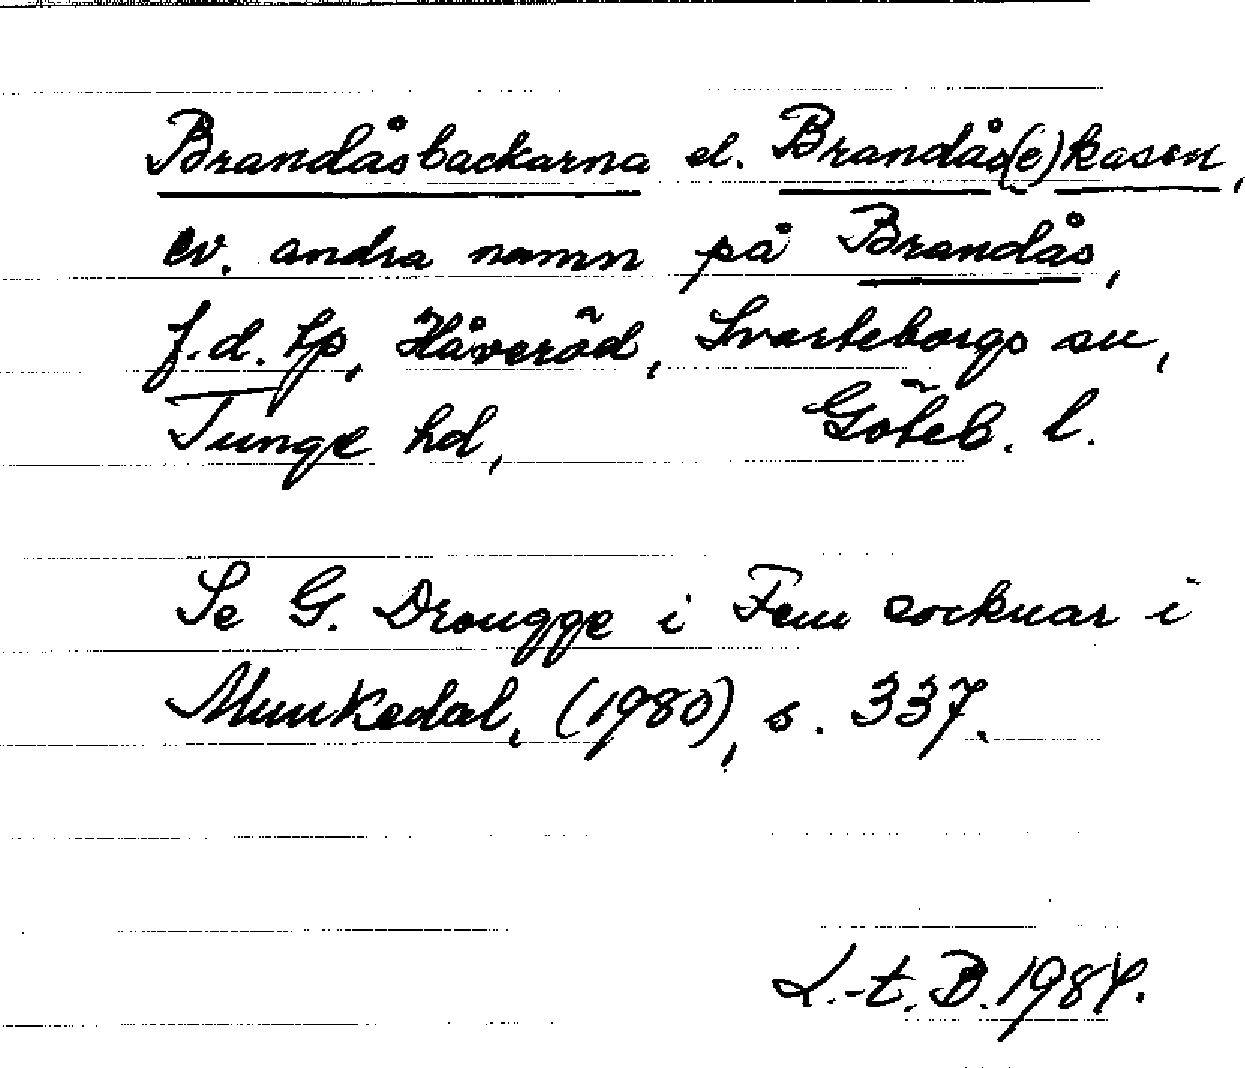 Brandåsbackarna el. Brandås(e)kasen,
ev. andra namn på Brandås,
f.d. tp, Håveröd, Svarteborgs sn,
Tunge hd, Göteb. l.
Se G. Drougge i Fem socknar i
Munkedal, (1980), s. 337.
L.-t. B. 1984.